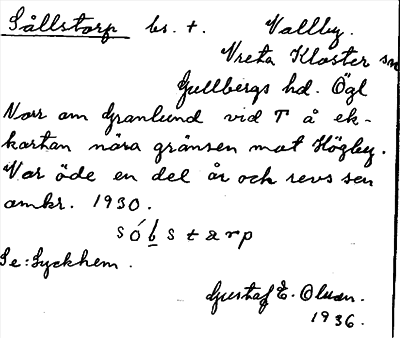 Sållstorp bs. t. Vallby.
Vreta Kloster sn
Gullbergs hd. Ögl
Norr om Granlund vid T å ek-
kartan nära gränsen mot Högby.
Var öde en del år och revs sen
omkr. 1930.
sólstarp
Se: Lyckhem.
Gustaf E. Olsson.
1936.